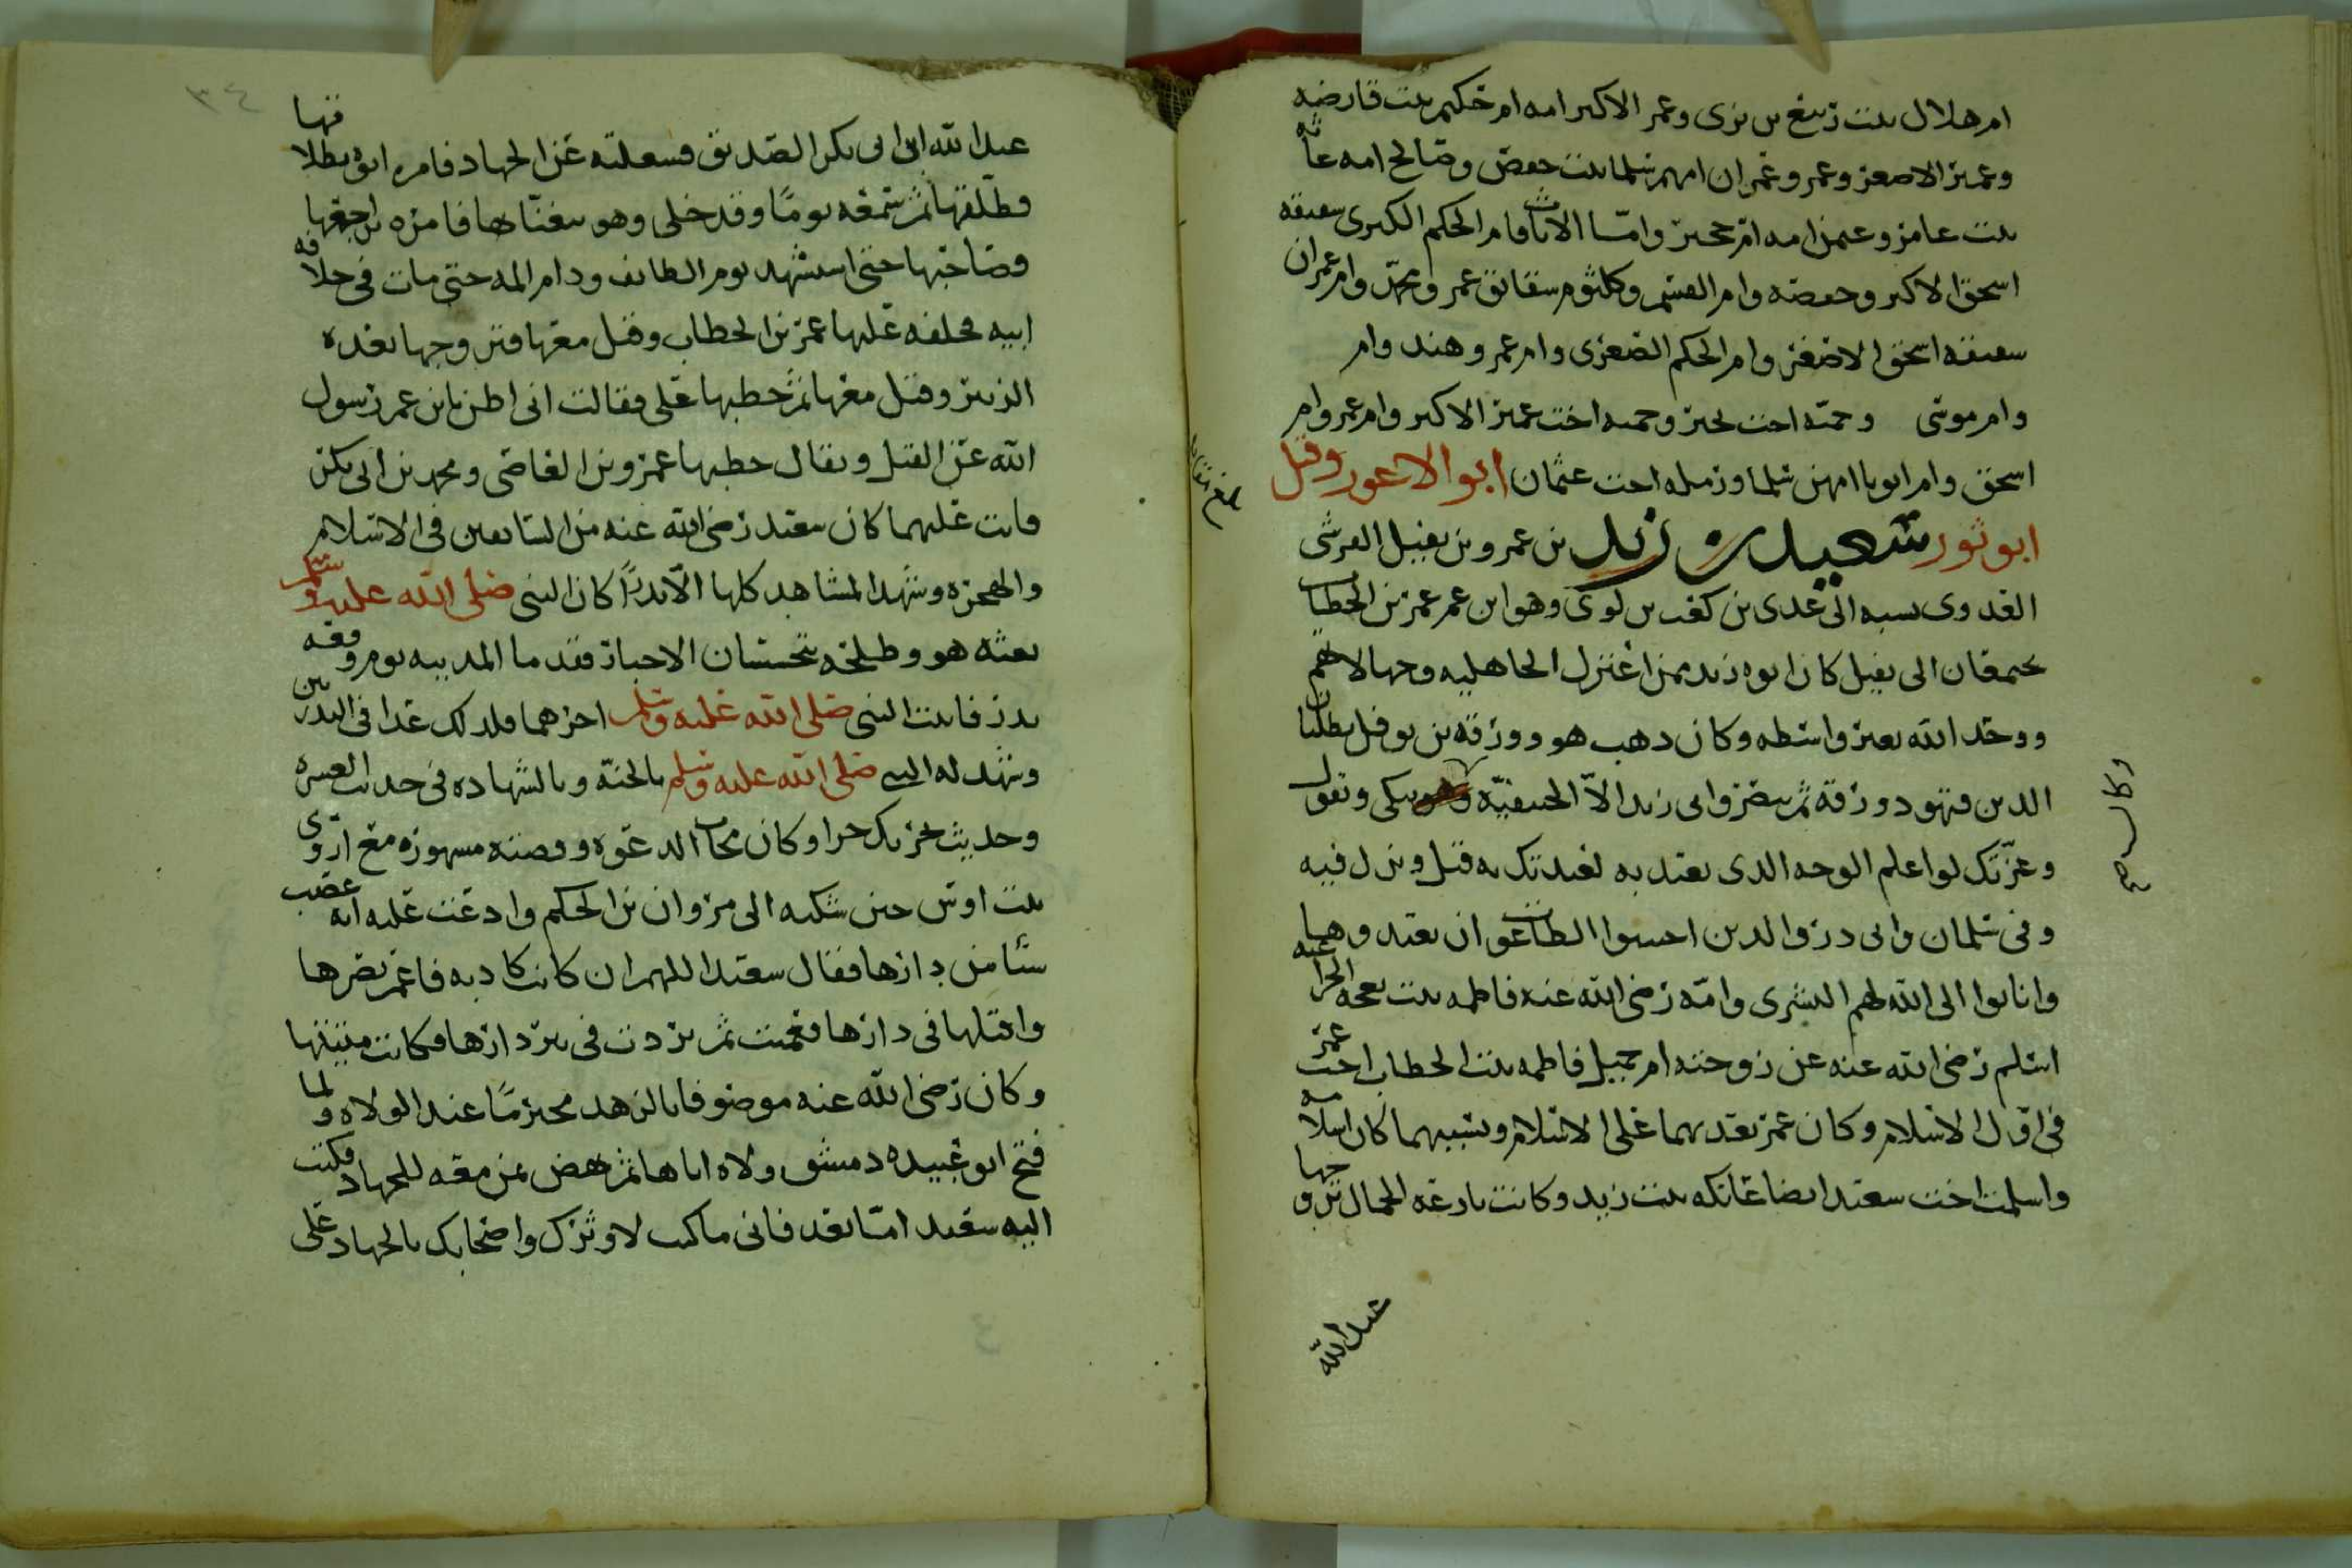 ام هلال بنت ربيع بن برى وعمر الاكبر امه ام حكيم بنت قارضه
وعمير الاصغر وعمرو وعمران امهم سلما بنت حفص وصالح امه عاثه
بنت عامر وعثمن امه ام حجير وامّا الاناث فام الحكم الكبرى سقيقه
اسحق الاكبر وحفصه وام القسم وكلثوم سقايق عمر ومحمّد وام عمران
سقيقه اسحق الاصغر وام الحكم الصغرى وام عمرو وهند وام
وام موسى وحمنه اخت بحير وحمنه اخت عمير الاكبر وام عمر وام
اسحق وام ايوبا امهن سلما ورمله اخت عثمان ابو الاعور وقيل
ابو ثور سعيد بن زيد بن عمرو بن نفيل القرشى
العدوى نسبه الى عدى بن كعب بن لوى وهو ابن عم عمر بن الخطاب
يجمعان الى نفيل كان ابوه زيد ممن اعتزل الجاهليه وجهالاتهم
ووحّد الله بغير واسطه وكان ذهب هو وورقة بن نوفل يطلبان
الدين فتهود ورقة ثم تنصر وابى زيد الاّ الحنيفيّة يبكى ويقول
وعزّتك لو اعلم الوجه الذى تعبد به لعبدتك به قيل ونزل فيه
وفى سلمان وابى ذر والذين اجتنبوا الطاغوت ان يعبدوها
وانابوا الى الله لهم البشرى وامّه رضى الله عنه فاطمه بنت بعجه الخزاعيه
اسلم رضى الله عنه عن زوجته ام جميل فاطمه بنت الخطاب اخت عمر
فى اوّل الاسلام وكان عمر يعذبهما على الاسلام وبسببهما كان اسلامه
واسلمت اخت سعيد ايضا عاتكه بنت زيد وكانت بارعه الجمال تزوجها
عبدالله
عبدالله ابن ابى بكر الصديق فشغلته عن الجهاد فامره ابوه بطلاقها
فطلّقها ثم سمعه يومًا وقد خلى وهو يتغنّا بها فامره براجعها
وصاحبها حتى استشهد يوم الطايف ودام المه حتى مات فى خلافه
ابيه فخلفه عليها عمر بن الخطاب وقتل معها فتزوجها بعده
الزبير وقتل معها ثم خطبها على فقالت انى اظن بابن عم رسول
الله عن القتل ويقال خطبها عمرو بن العاصى ومحمد بن ابى بكر
فابت عليهما كان سعيد رضى الله عنه من السابعين فى الاسلام
والهجره وشهد المشاهد كلها الاّ بدرًا كان النبى صلى الله عليه وسلم
بعثه هو وطلحه يتحسسان الاخبار فقدما المدينه يوم وقعه
بدر فاثبت النبى صلى الله عليه وسلم اجرهما فلذلك عدا فى البدريين
وشهد له النبى صلى الله عليه وسلم بالجنّة وبالشهاده فى حديث العشره
وحديث تحريك حرا وكان مجاب الدعوه وقصته مشهوره مع اروى
بنت اوس حين شكته الى مروان بن الحكم وادعت عليه انه غصب
شئا من دارها فقال سعيد اللهم ان كانت كاذبه فاعم بصرها
واقتلها فى دارها فعميت ثم تردت فى بير دارها فكانت ميتتها
وكان رضى الله عنه موصوفا بالزهد محترمًا عند الولاه ولما
فتح ابو عبيده دمشق ولاه اياها ثم نهض بمن معه للجهاد فكتب
اليه سعيد امّا بعد فانى ما كنت لاوثرك واصحابك بالجهاد على